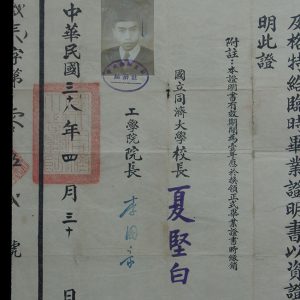 及格特給臨時畢業證明書以資證
明此證
附註：本證明書有效期間為壹年應於換領正式畢業證書時繳銷
國立同濟大學校長 夏堅白
工學院院長 李國豪
中華民國三十八年四月三十日
字第零 號